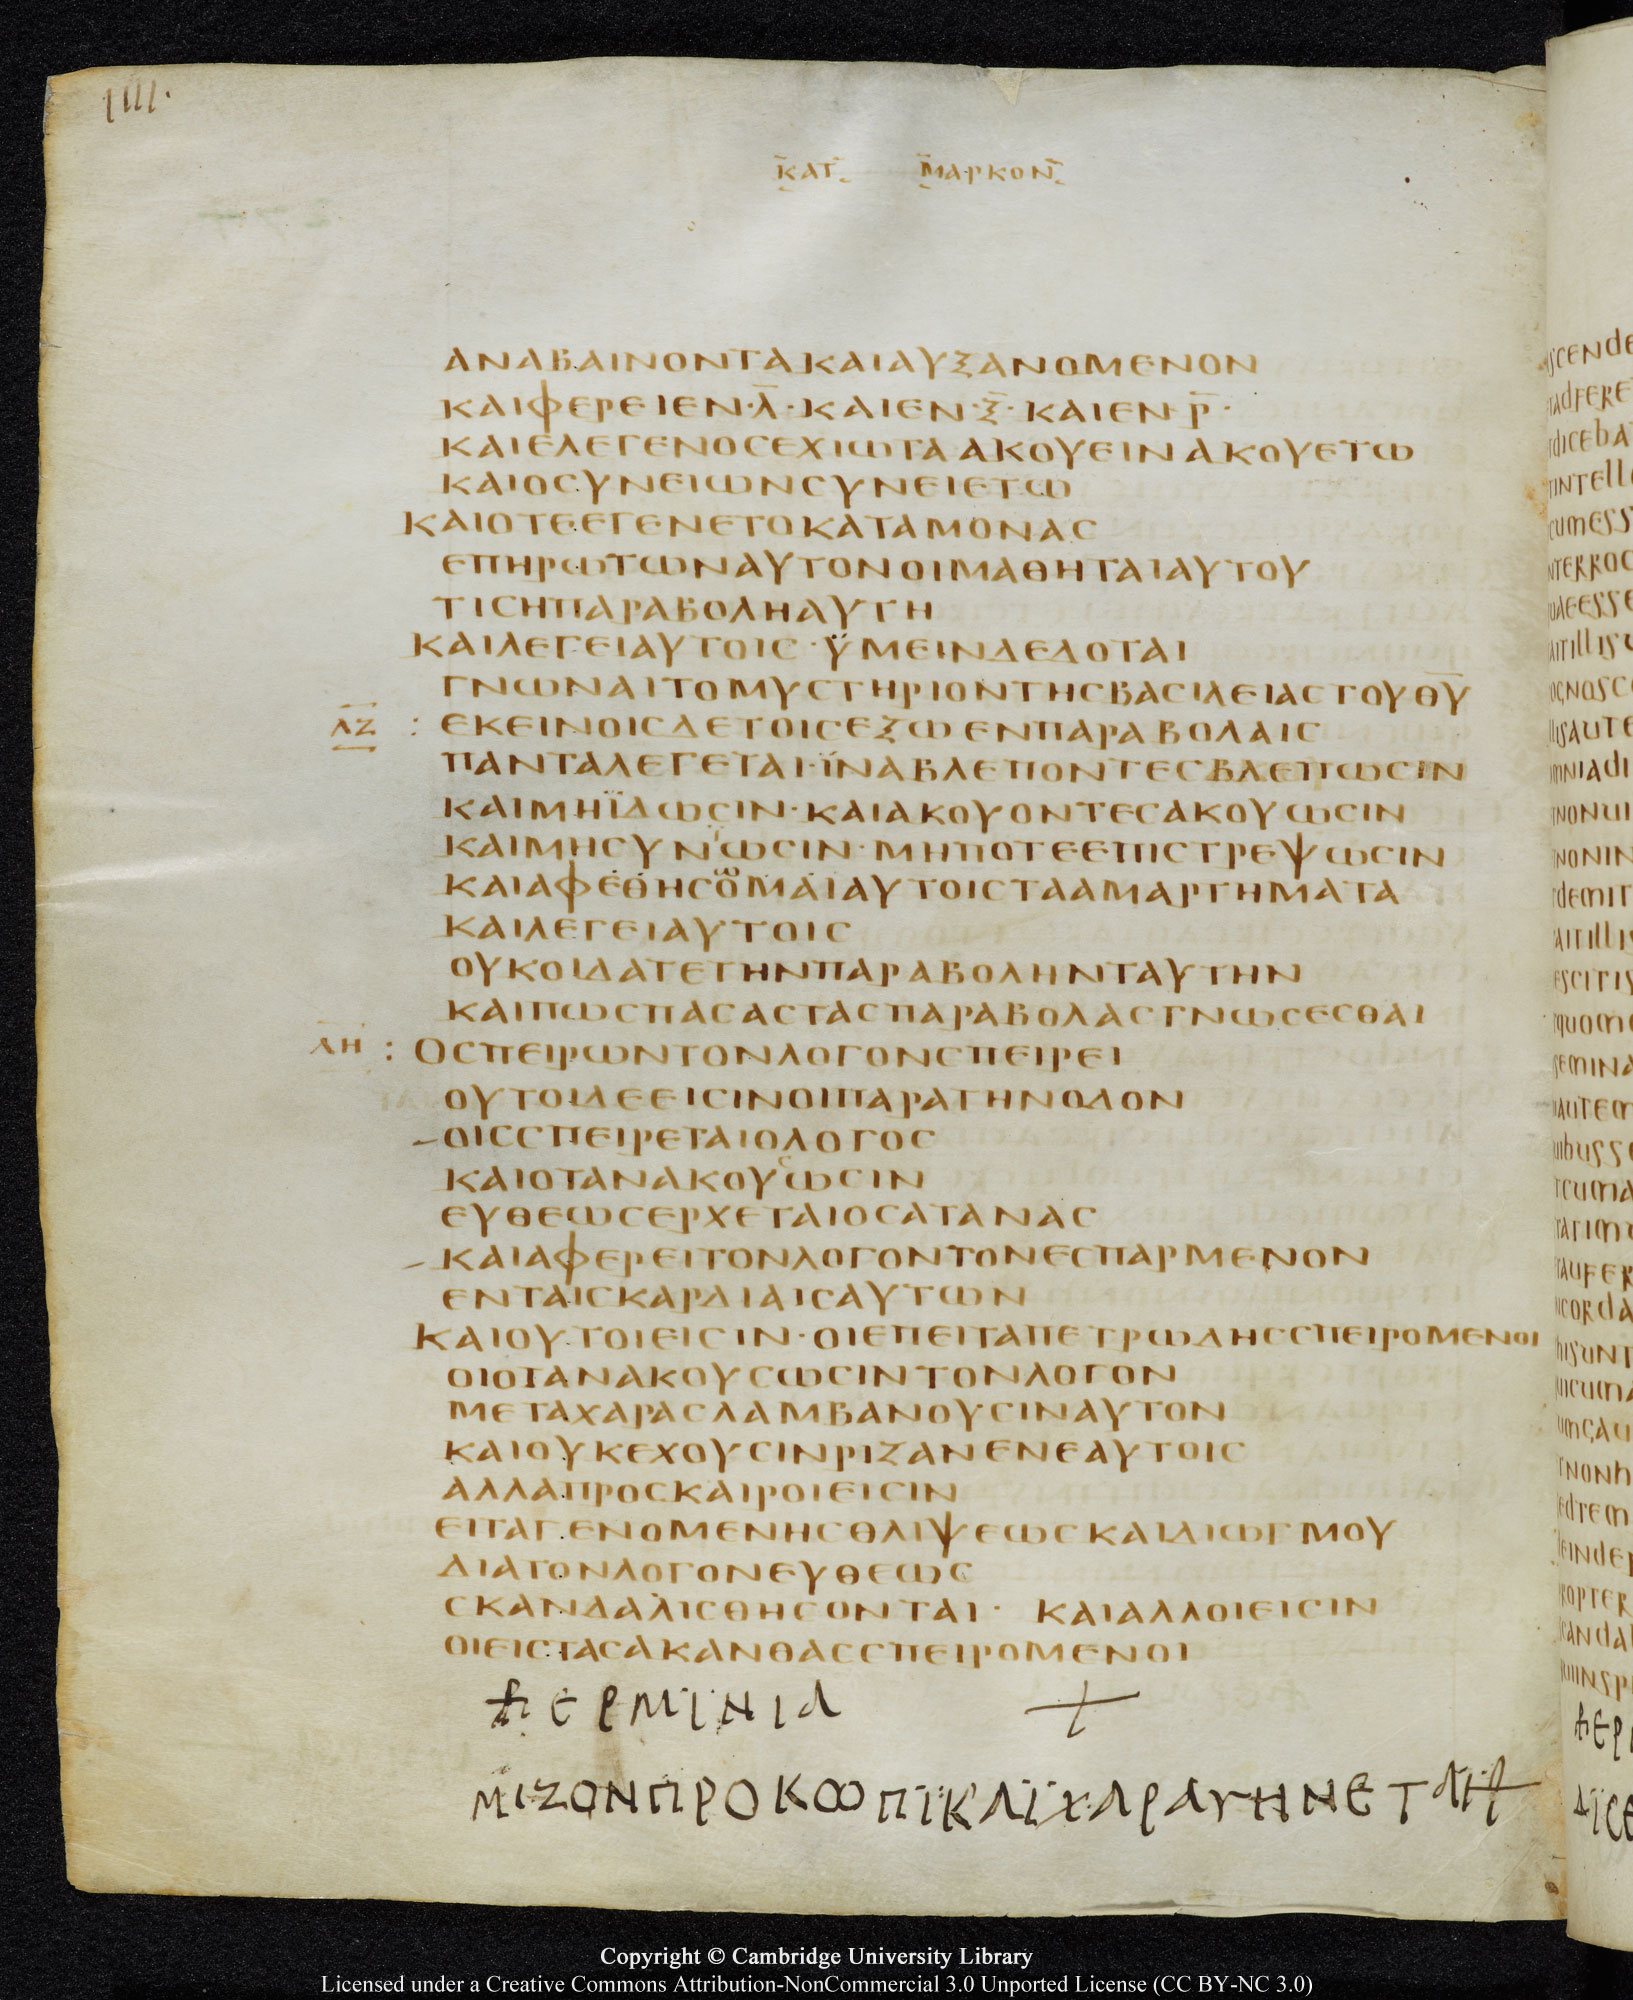 ΙΙΙΙ·
ΚΑΤ ΜΑΡΚΟΝ
ΑΝΑΒΑΙΝΟΝΤΑΚΑΙΑΥΞΑΝΟΜΕΝΟΝ
ΚΑΙΦΕΡΕΙΕΝ·Λ̅·ΚΑΙΕΝ·Ξ̅·ΚΑΙΕΝ·Ρ̅·
ΚΑΙΕΛΕΓΕΝΟCΕΧΙΩΤΑΑΚΟΥΕΙΝΑΚΟΥΕΤΩ
ΚΑΙΟCΥΝΕΙΩΝCΥΝΕΙΕΤΩ
ΚΑΙΟΤΕΕΓΕΝΕΤΟΚΑΤΑΜΟΝΑC
ΕΠΗΡΩΤΩΝΑΥΤΟΝΟΙΜΑΘΗΤΑΙΑΥΤΟΥ
ΤΙCΗΠΑΡΑΒΟΛΗΑΥΤΗ
ΚΑΙΛΕΓΕΙΑΥΤΟΙC·ΫΜΕΙΝΔΕΔΟΤΑΙ
ΓΝΩΝΑΙΤΟΜΥCΤΗΡΙΟΝΤΗCΒΑCΙΛΕΙΑCΤΟΥΘ̅Υ̅
ΛΖ : ΕΚΕΙΝΟΙCΔΕΤΟΙCΕΞΩΕΝΠΑΡΑΒΟΛΑΙC
ΠΑΝΤΑΛΕΓΕΤΑΙ·ΪΝΑΒΛΕΠΟΝΤΕCΒΛΕΠΩCΙΝ
ΚΑΙΜΗΪΔΩCΙΝ·ΚΑΙΑΚΟΥΟΝΤΕCΑΚΟΥΩCΙΝ
ΚΑΙΜΗCΥΝΙΩCΙΝ·ΜΗΠΟΤΕΕΠΙCΤΡΕΨΩCΙΝ
ΚΑΙΑΦΕΘΗCΟΜΑΙΑΥΤΟΙCΤΑΑΜΑΡΤΗΜΑΤΑ
ΚΑΙΛΕΓΕΙΑΥΤΟΙC
ΟΥΚΟΙΔΑΤΕΤΗΝΠΑΡΑΒΟΛΗΝΤΑΥΤΗΝ
ΚΑΙΠΩCΠΑCΑCΤΑCΠΑΡΑΒΟΛΑCΓΝΩCΕCΘΑΙ
ΛΗ : ΟCΠΕΙΡΩΝΤΟΝΛΟΓΟΝCΠΕΙΡΕΙ
ΟΥΤΟΙΔΕΕΙCΙΝΟΙΠΑΡΑΤΗΝΟΔΟΝ
ΟΙCCΠΕΙΡΕΤΑΙΟΛΟΓΟC
ΚΑΙΟΤΑΝΑΚΟΥCΩCΙΝ
ΕΥΘΕΩCΕΡΧΕΤΑΙΟCΑΤΑΝΑC
ΚΑΙΑΦΕΡΕΙΤΟΝΛΟΓΟΝΤΟΝΕCΠΑΡΜΕΝΟΝ
ΕΝΤΑΙCΚΑΡΔΙΑΙCΑΥΤΩΝ
ΚΑΙΟΥΤΟΙΕΙCΙΝ·ΟΙΕΠΕΙΤΑΠΕΤΡΩΔΗCCΠΕΙΡΟΜΕΝΟΙ
ΟΙΟΤΑΝΑΚΟΥCΩCΙΝΤΟΝΛΟΓΟΝ
ΜΕΤΑΧΑΡΑCΛΑΜΒΑΝΟΥCΙΝΑΥΤΟΝ
ΚΑΙΟΥΚΕΧΟΥCΙΝΡΙΖΑΝΕΝΕΑΥΤΟΙC
ΑΛΛΑΠΡΟCΚΑΙΡΟΙΕΙCΙΝ
ΕΙΤΑΓΕΝΟΜΕΝΗCΘΛΙΨΕΩCΚΑΙΔΙΩΓΜΟΥ
ΔΙΑΤΟΝΛΟΓΟΝΕΥΘΕΩC
CΚΑΝΔΑΛΙCΘΗCΟΝΤΑΙ· ΚΑΙΑΛΛΟΙΕΙCΙΝ
ΟΙΕΙCΤΑCΑΚΑΝΘΑCCΠΕΙΡΟΜΕΝΟΙ
ΕΡΜΙΝΙΑ +
ΜΙΖΟΝΠΡΟΚΟΟΠΙΚΑΙΧΑΡΑΥΗΝΕΤΑΙ
Copyright © Cambridge University Library
Licensed under a Creative Commons Attribution-NonCommercial 3.0 Unported License (CC BY-NC 3.0)